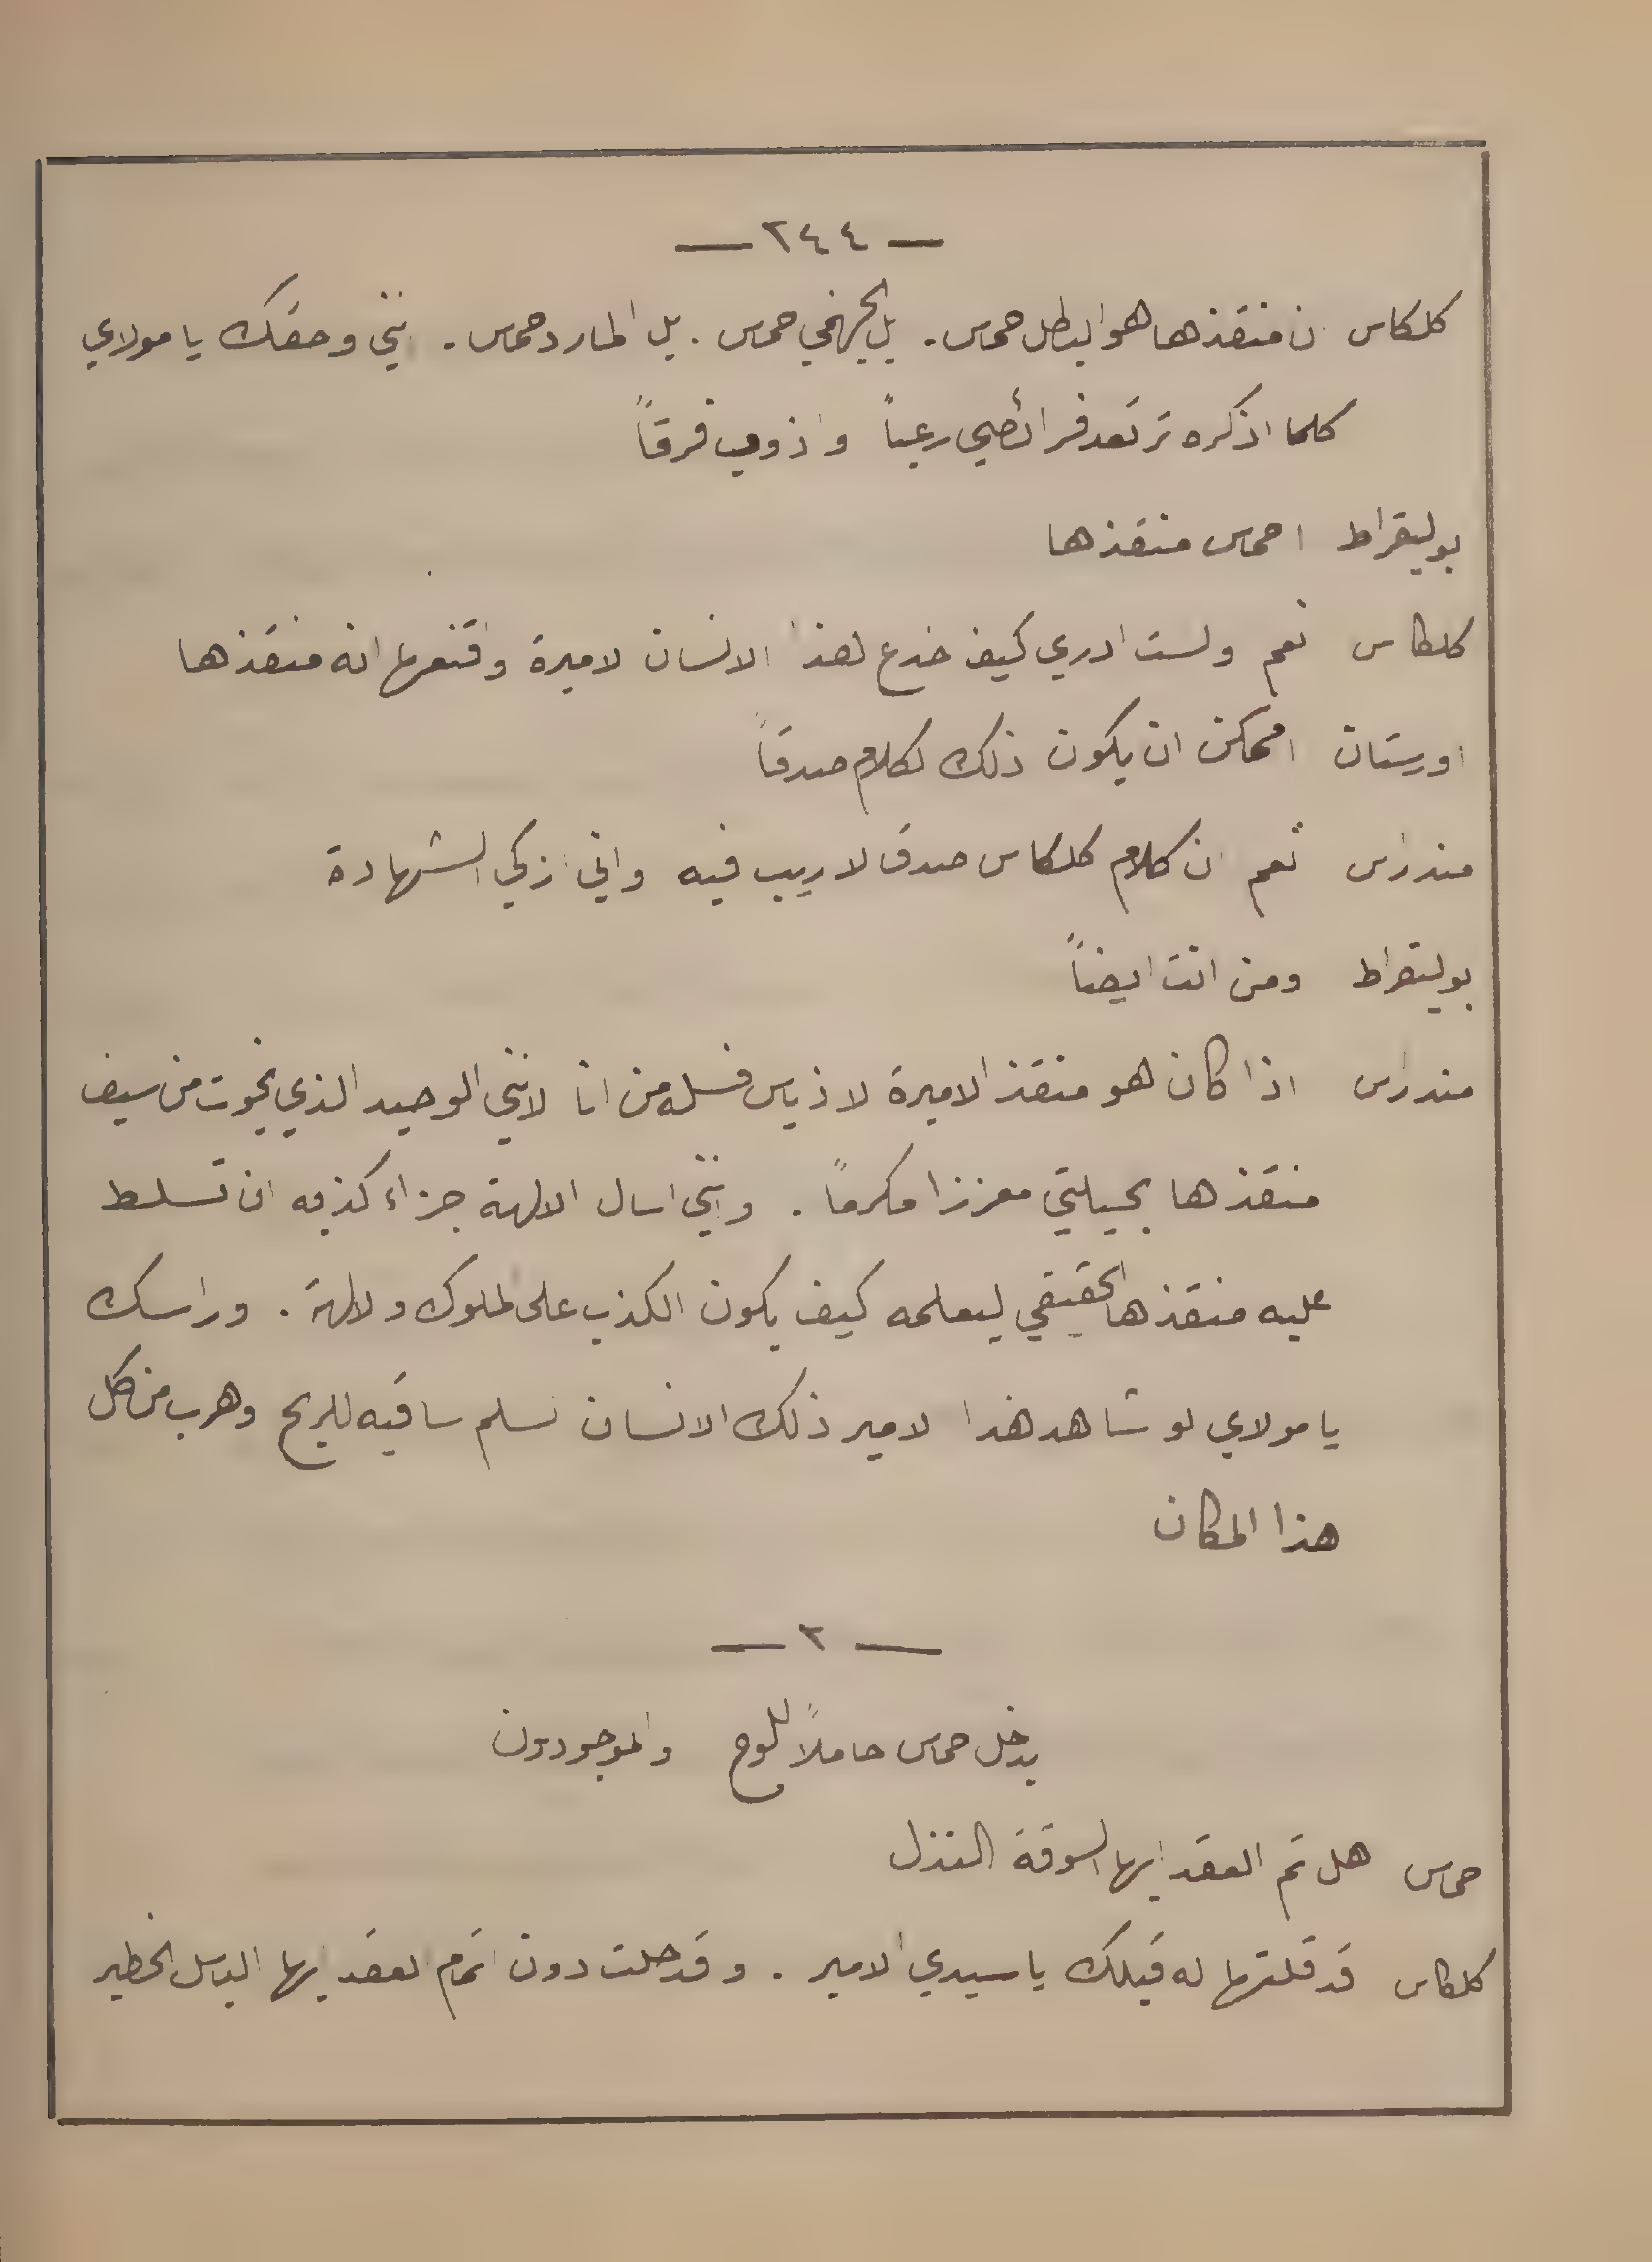 — ٢٤٤ —
كلكاس ان منقذها هو البطل حماس . بل الجهنمي حماس . بل المارد حماس . انني وحقك يا مولاي
كلما اذكره ترتعد فرائصي رعباً واذوب فرقاً
بوليقراط احماس منقذها
كلكاس نعم ولست ادري كيف خدع هذا الانسان لاميرة واقنعها انه منقذها
اورستان اممكن ان يكون ذلك لكلام صدقاً
مندراس نعم ان كلام كلكاس صدق لا ريب فيه واني ازكي الشهادة
بوليقراط ومن انت ايضاً
مندراس اذا كان هو منقذ الاميرة لاذياس فسله من انا لانني الوحيد الذي نجوت من سيف
منقذها بحيلتي معززا مكرماً . وانني اسال الالهة جزاء كذبه ان تسلط
عليه منقذها الحقيقي ليعلمه كيف يكون الكذب على لملوك ولالهة . وراسك
يا مولاي لو شاهد هذا لامير ذلك الانسان لسلم ساقيه للريح وهرب من كل
هذا المكان
— ٢ —
يدخل حماس حاملاً للوح والموجودون
حماس هل تم العقد ايها السوقة النذل
كلكاس قد قلتها له قبلك يا سيدي الامير . وقد حلت دون اتمام لعقد ايها الباسل الخطير